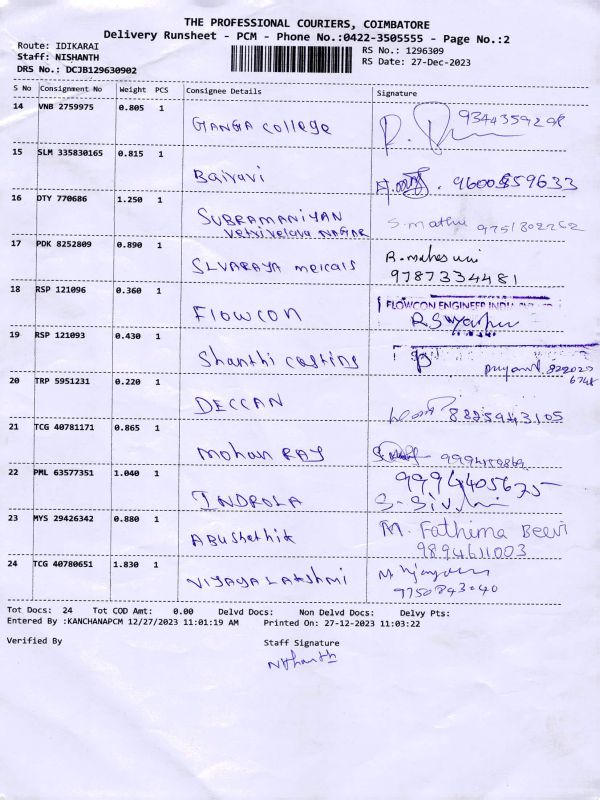 THE PROFESSIONAL COURIERS, COIMBATORE
Delivery Runsheet - PCM - Phone No.:0422-3505555 - Page No.:2
Route: IDIKARAI
Staff: NISHANTH
DRS No.: DCJB129630902
RS No.: 1296309
RS Date: 27-Dec-2023
S No Consignment No Weight PCS Consignee Details Signature
14 VNB 2759975 0.805 1 GANGA college 9344359298
15 SLM 335830165 0.815 1 Bairavi 9600859633
16 DTY 770686 1.250 1 SUBRAMANIYAN S.mathu 9751802262
Vetrivelava NAGAR
17 PDK 8252809 0.890 1 SLVARAYA melcals R.maheswi
9787334481
18 RSP 121096 0.360 1 FLOWCON FLOWCON ENGINEER INDIA
19 RSP 121093 0.430 1 Shanthi casting
20 TRP 5951231 0.220 1 DECCAN 8825943105
21 TCG 40781171 0.865 1 mohan RAJ 9994150869
22 PML 63577351 1.040 1 INDROLA 9994405675
23 MYS 29426342 0.880 1 ABUshethik M. Fathima Beevi
9894611003
24 TCG 40780651 1.830 1 VIJAYA LAKSHMI
9750843040
Tot Docs: 24 Tot COD Amt: 0.00 Delvd Docs: Non Delvd Docs: Delvy Pts:
Entered By :KANCHANAPCM 12/27/2023 11:01:19 AM Printed On: 27-12-2023 11:03:22
Verified By Staff Signature
Nishanth